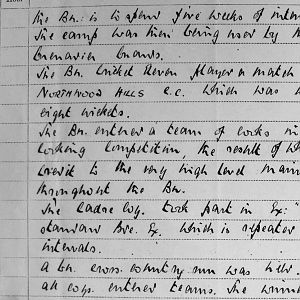 The Bn. is to spend five weeks of inten
The camp was then being used by
Grenadier Guards.
The Bn. Cricket Eleven played a match
NORTHWOOD HILLS C.C. which was
eight wickets.
The Bn. entered a team of cooks in
Cooking Competition, the result of wh
credit to the very high level main
throughout the Bn.
The Cadre Coy. took part in Ex: "
standard Bde. Ex. which is repeated
intervals.
A Bn. cross-country run was held.
all coys. entered teams. The winn